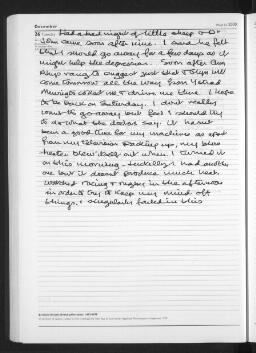 December
26
Had a bad night of little sleep & Dr
John came soon after nine. I said he felt
that I should go away for a few days as it
might help the depression. Soon after
rang to suggest just that &
come tomorrow all the way from
to collect me & drive me there. I hope
to be back on Saturday. I don't really
want to go away but feel I should try
to do what the doctor say. It hasn't
been a good time for my machines as apart
from my television packing up, my
heater blew itself out when I turned it
on this morning. Luckily I had another
one but it doesn't produce much heat.
Watched racing & rugby in the afternoon
in order to try to keep my mind off
things, & singularly failed in this